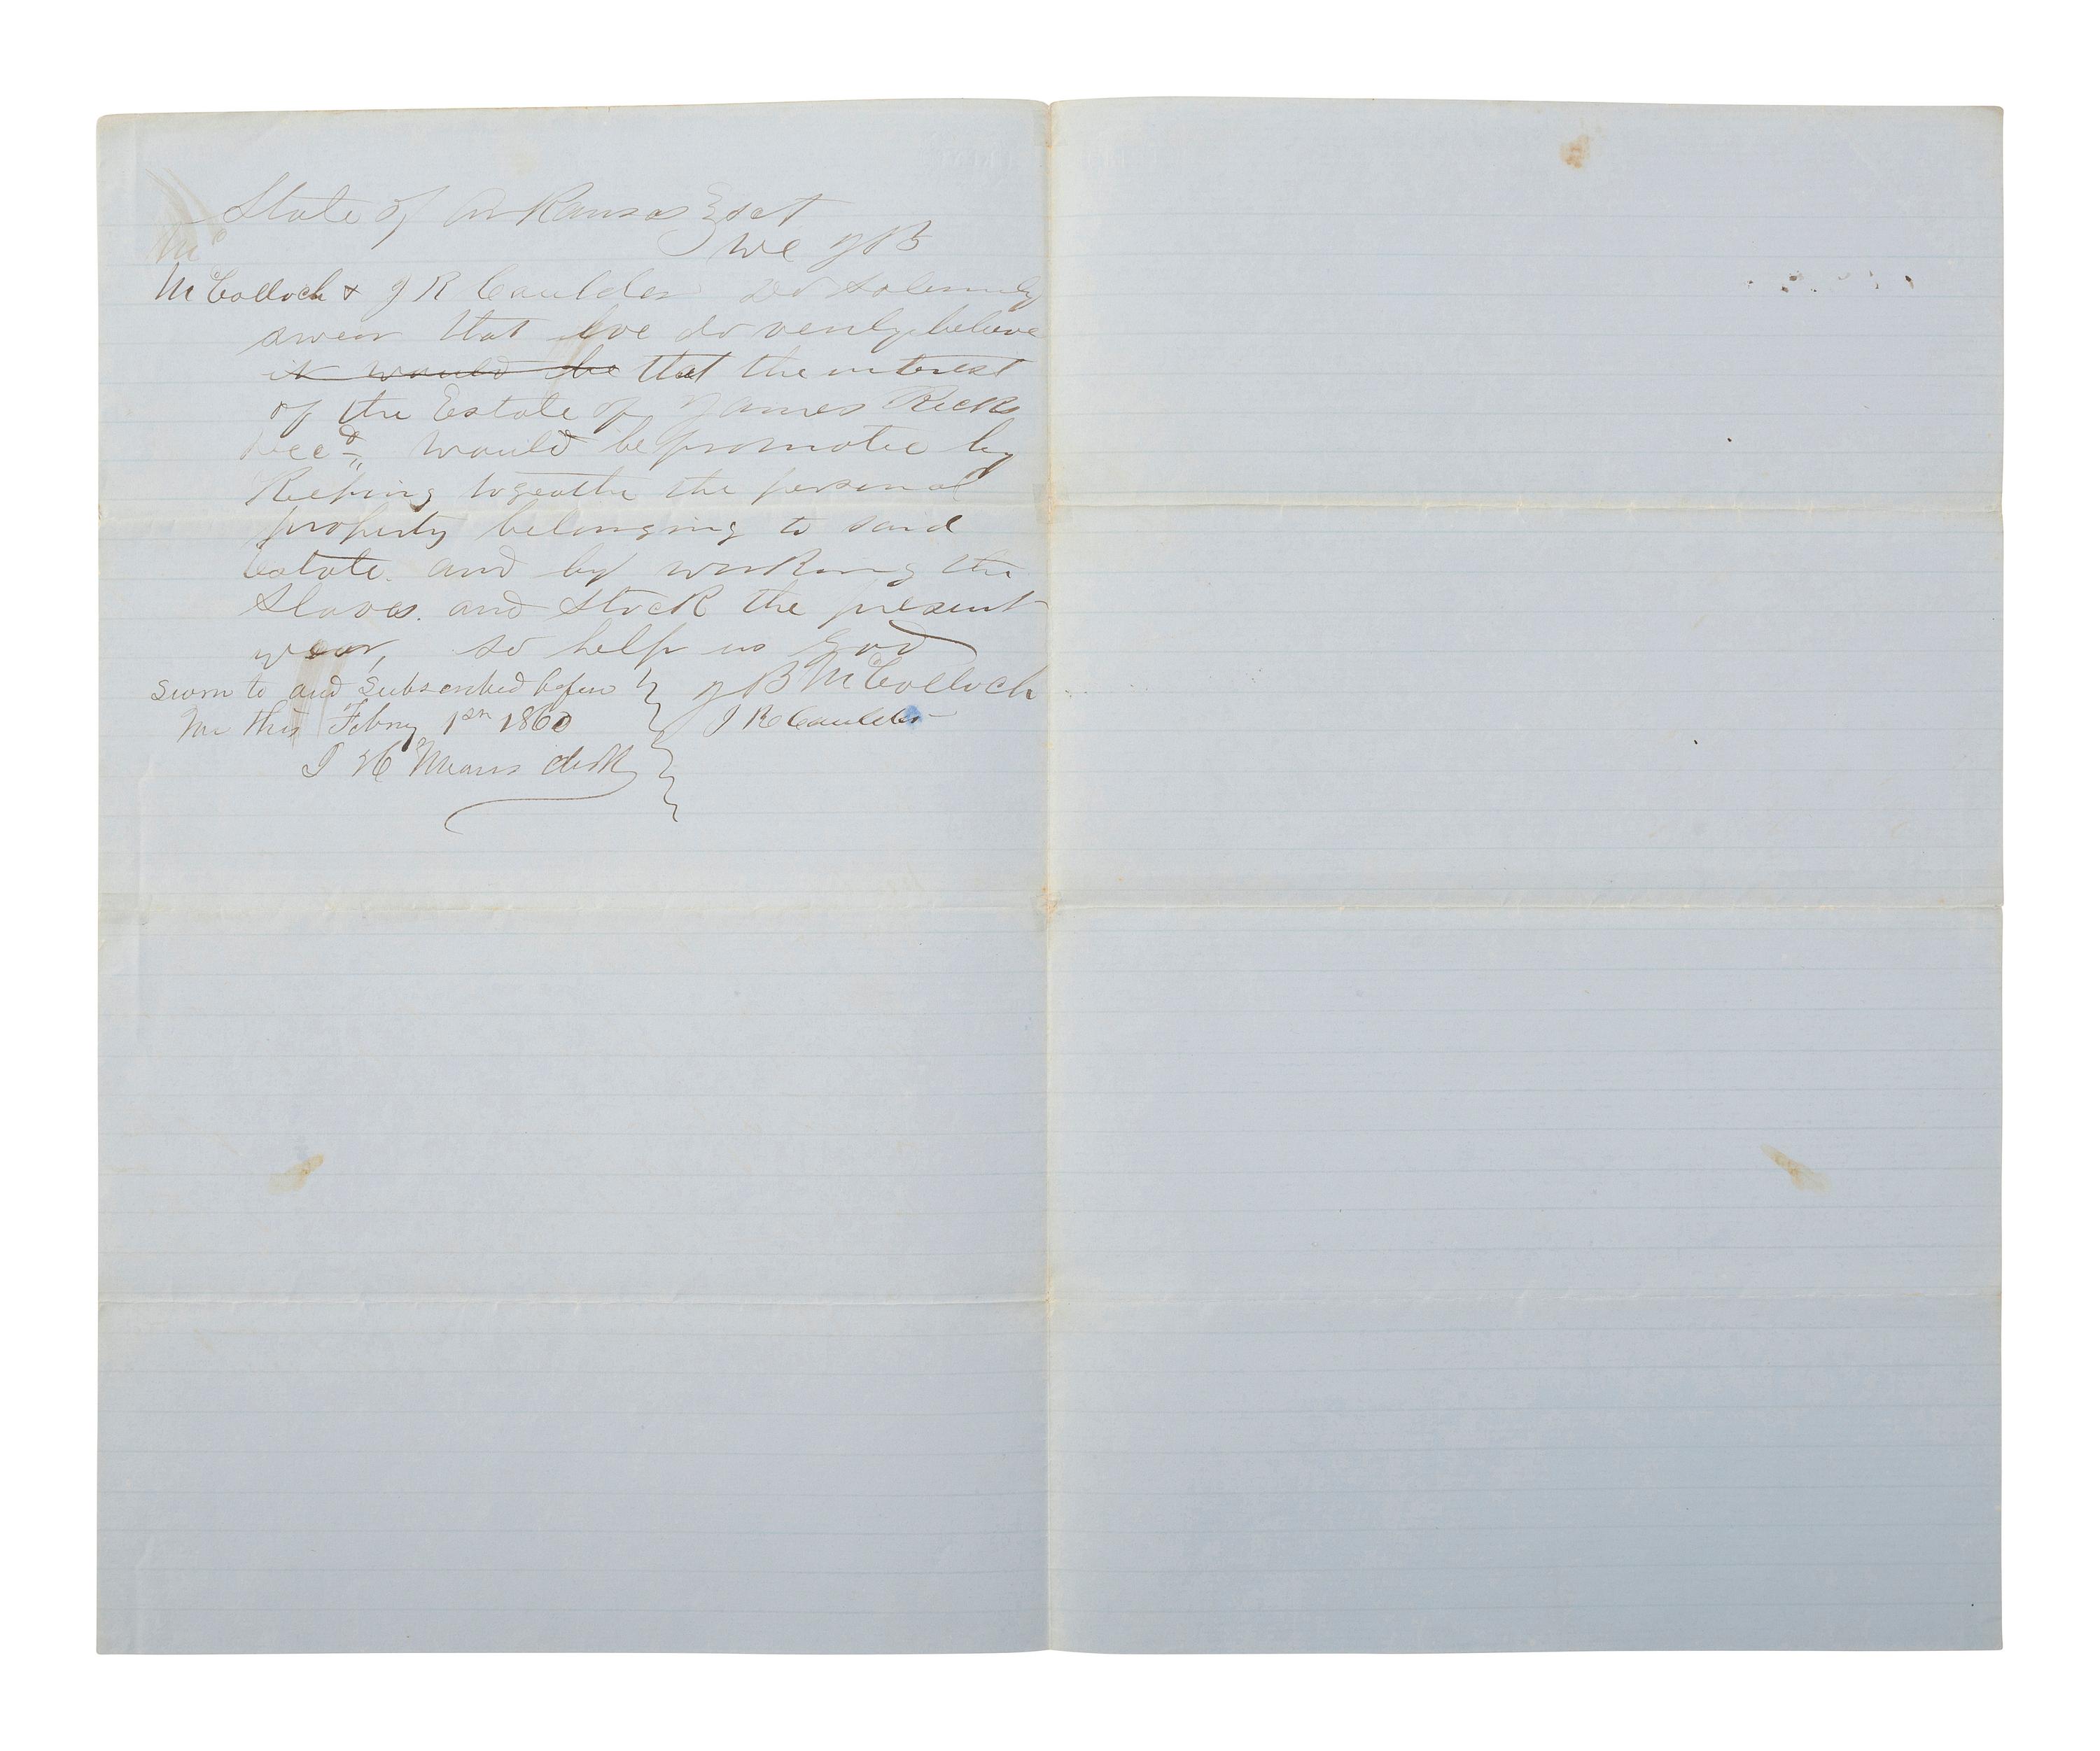 State of Arkansas } sct
We J B
Mc
McColloch & J R Caulder Do Solemnly
swear that we do verily believe
it would be that the interest
of the Estate of James Ricks
Decd, would be promotic by
Keeping togeathe the personal
property belonging to said
Estate. and by working the
Slaves. and Stock the present
year, so help us God
Sworn to and Subscribed before } J B McColloch
me this Febry 1st 1860 } J R Caulder
J H Means clerk }